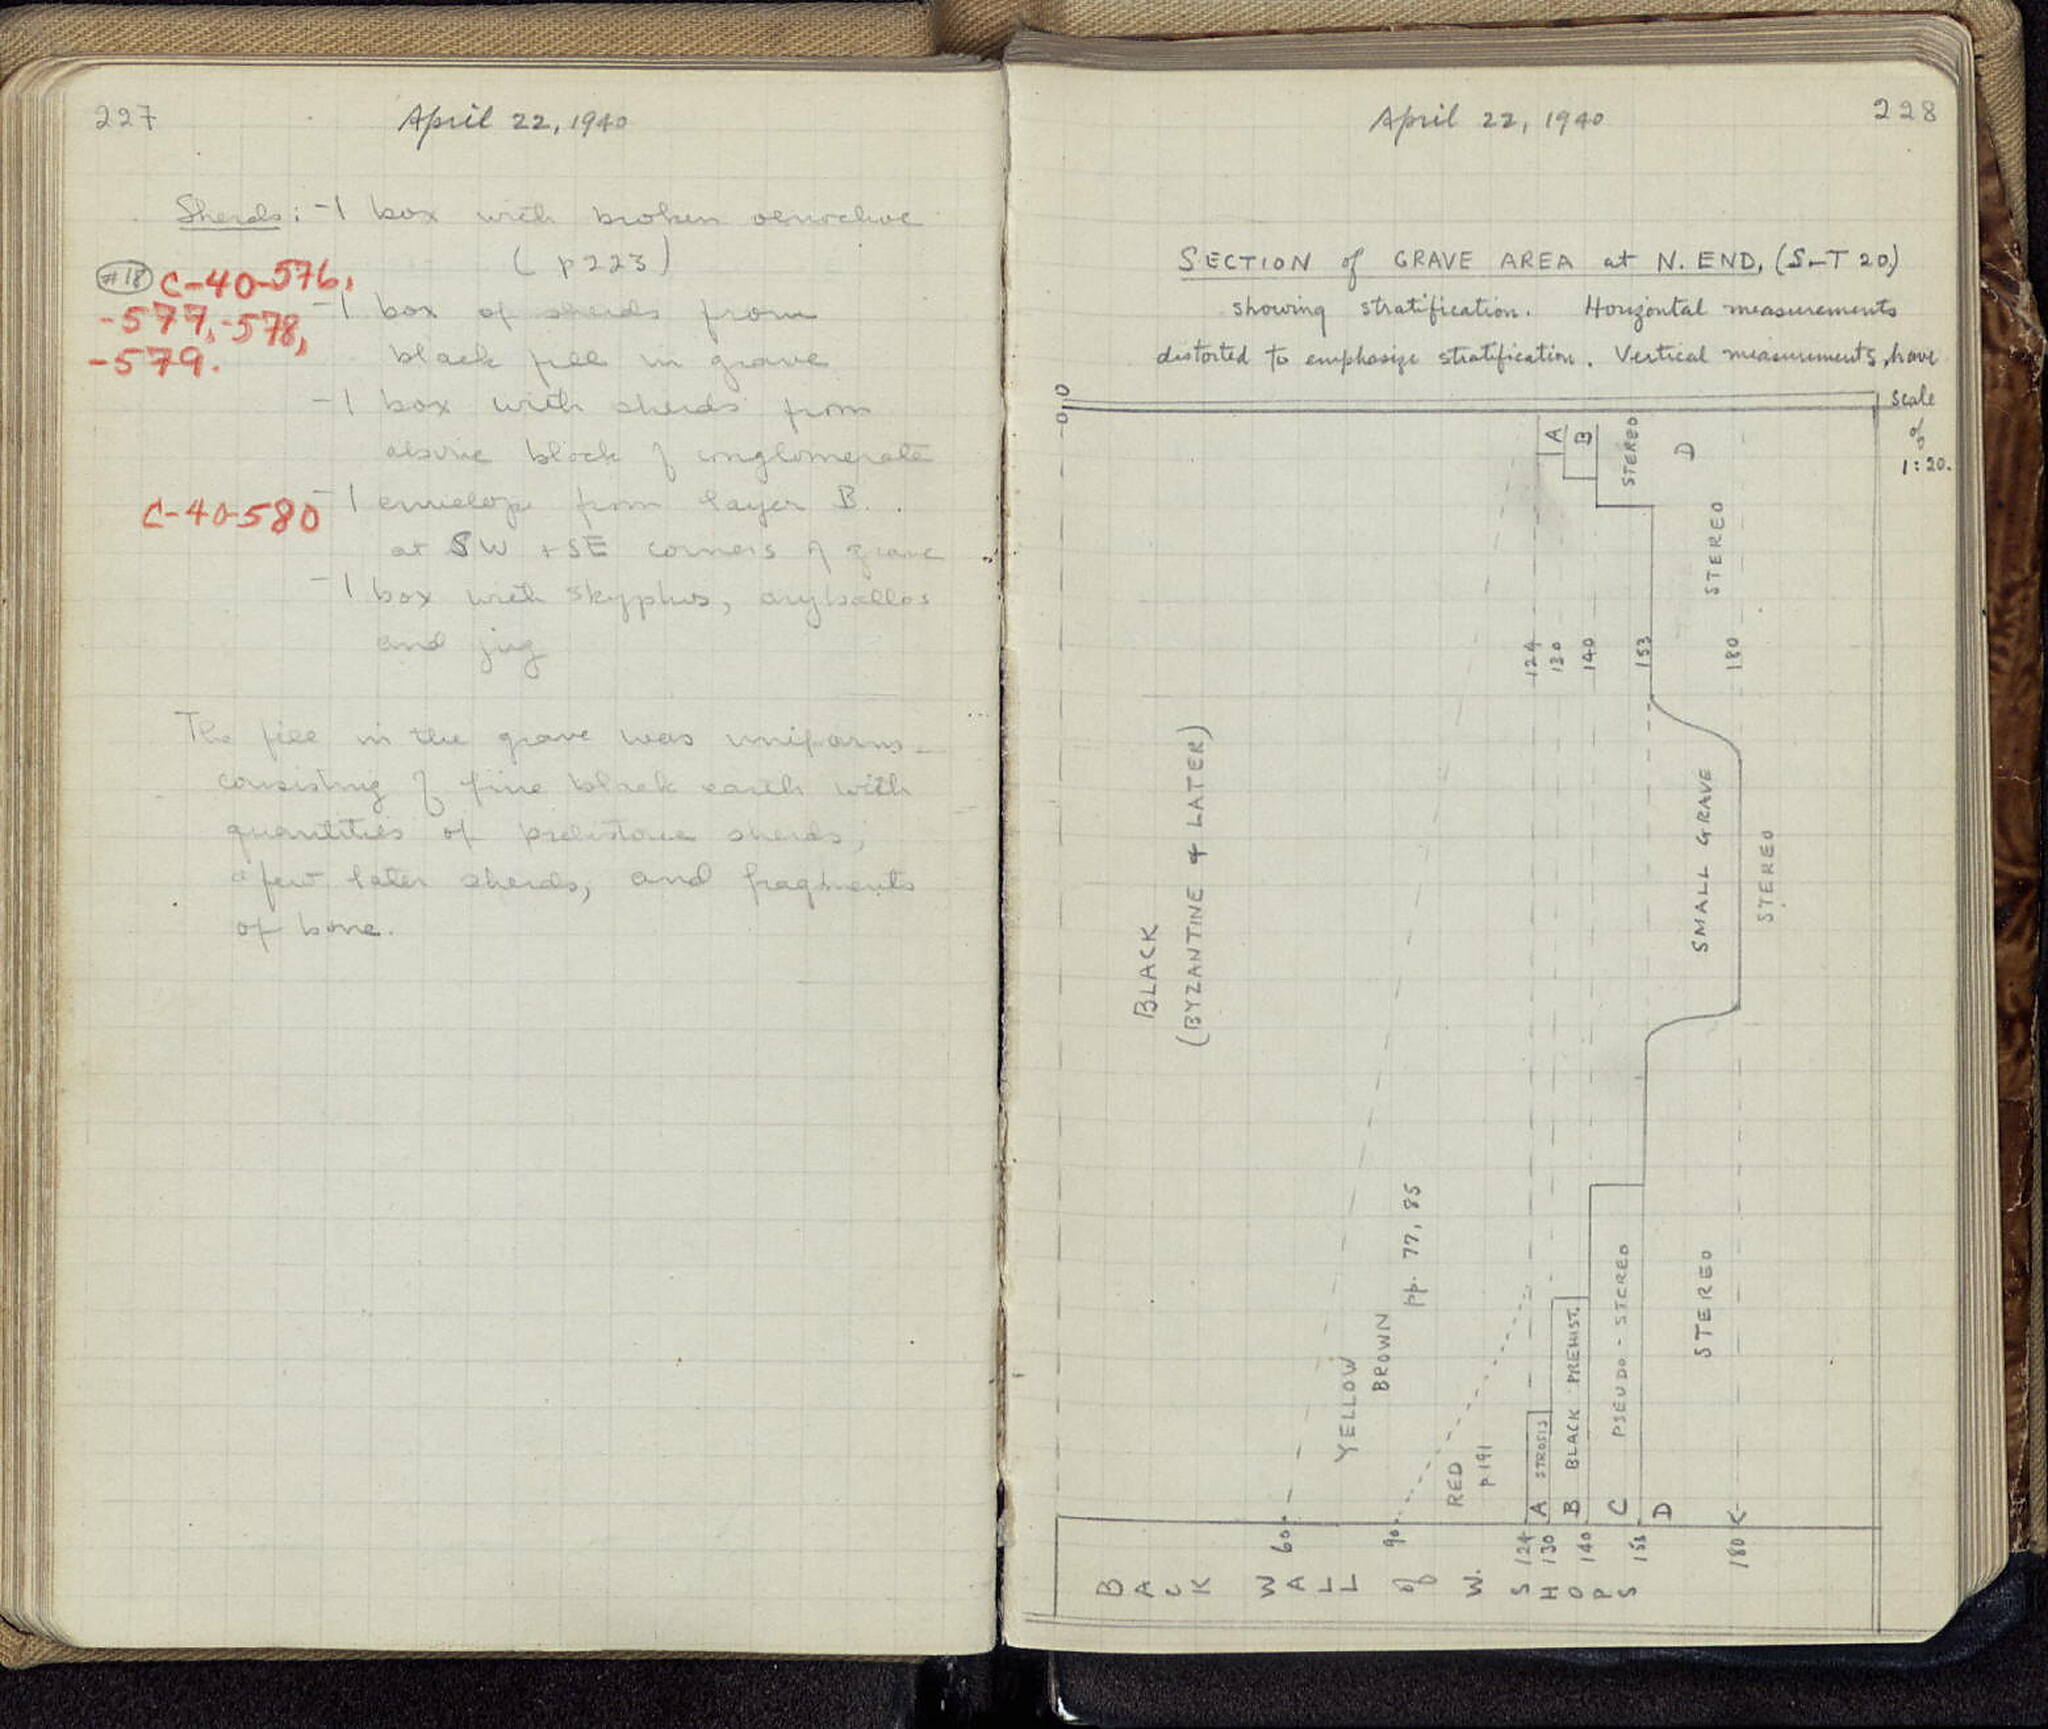 227
April 22, 1940
Sherds: -1 box with broken oenochoe
(p223)
#18 C-40-576,
-577, -578,
-579.
-1 box of sherds from
black fill in grave
-1 box with sherds from
above block of conglomerate
C-40-580
-1 envelop from layer B.
at SW + SE corners of grave
-1 box with skyphus, aryballos
and jug
The fill in the grave was uniform -
consisting of fine black earth with
quantities of prehistoric sherds,
a few later sherds, and fragments
of bone.
April 22, 1940
228
SECTION of GRAVE AREA at N. END, (S-T 20)
showing stratification. Horizontal measurements
distorted to emphasize stratification. Vertical measurements have
scale
of
1:20.
0,0
A
B
STEREO
D
STEREO
124
130
140
153
180
BLACK
(BYZANTINE & LATER)
SMALL GRAVE
STEREO
YELLOW
BROWN
pp. 77, 85
RED
p 191
A STROSIS
B BLACK PREHIST.
C PSEUDO-STEREO
D
STEREO
60
90
124
130
140
153
180
BACK
WALL
of
W.
SHOPS